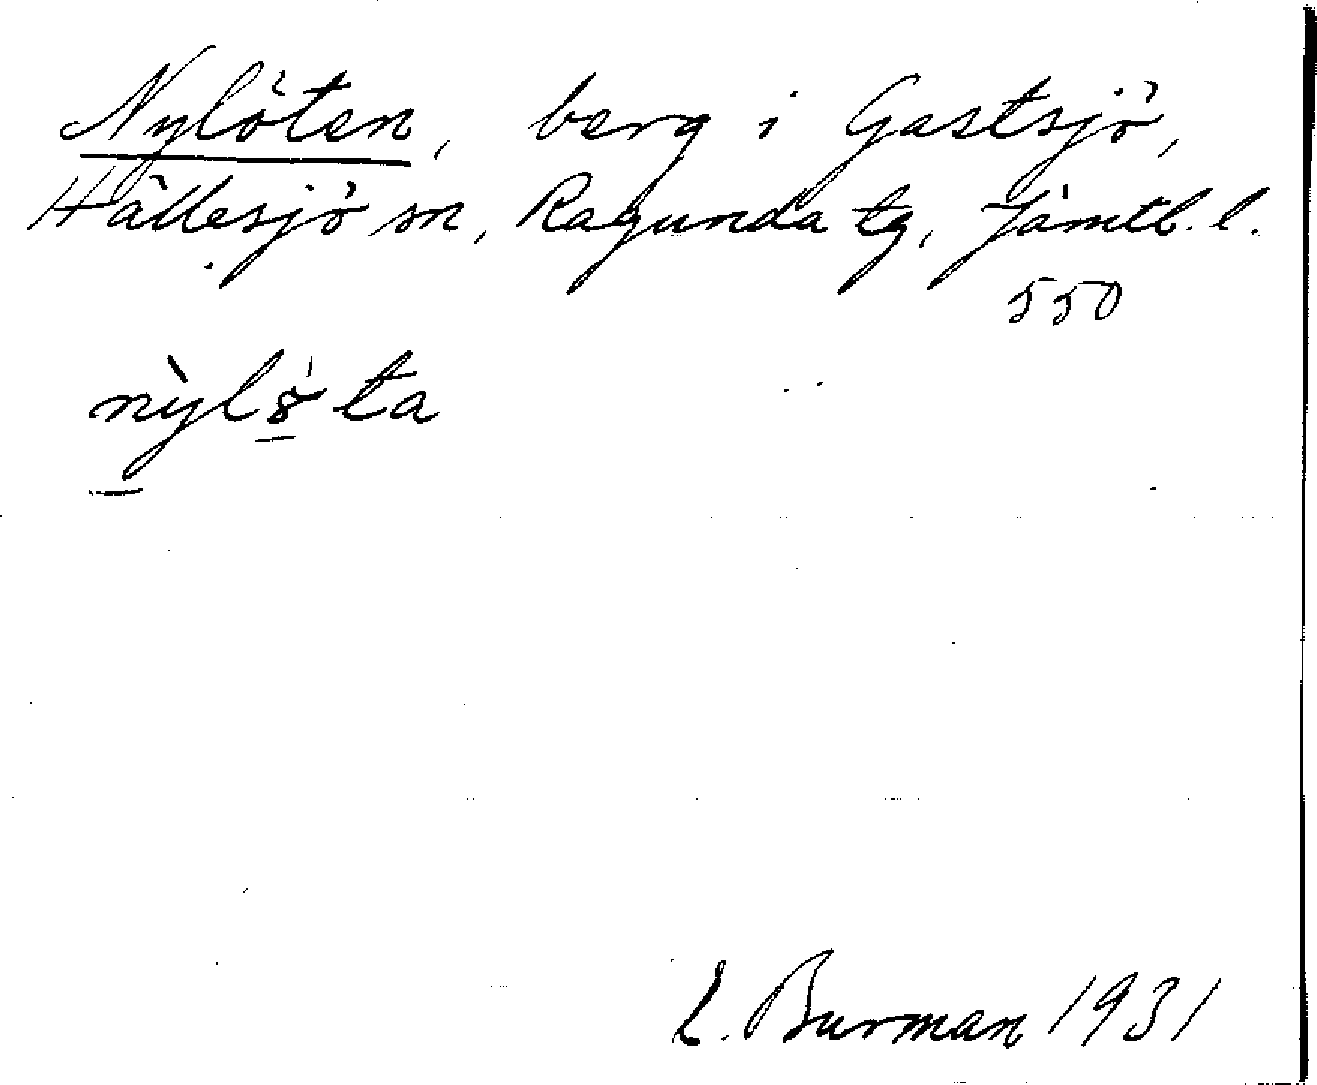 Nylöten, berg i Gastsjö,
Hällesjö sn, Ragunda tg, Jämtl. l.
550
nỳlö̀ta
L. Burman 1931